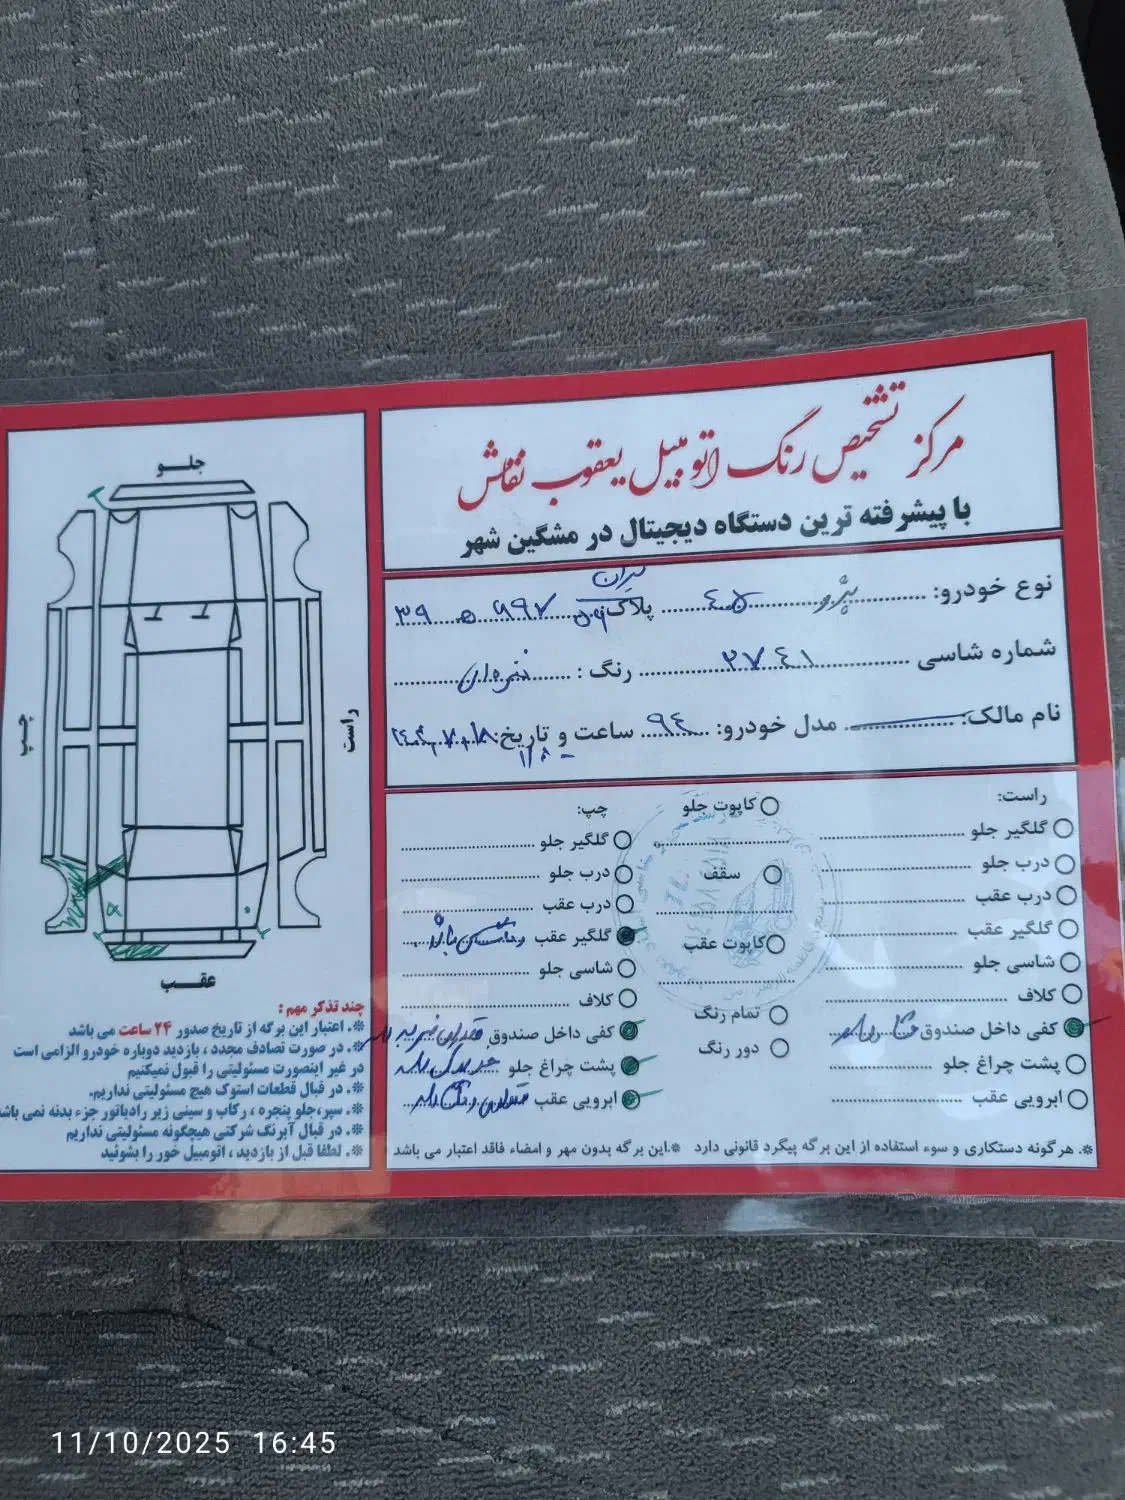 مرکز تشخیص رنگ اتومبیل یعقوب نقاش
با پیشرفته ترین دستگاه دیجیتال در مشگین شهر
نوع خودرو: پژو ۴۰۵ پلاک: ایران ۳۹ ه ۶۹۷
شماره شاسی ۲۷۴۱ رنگ: نقره ای
نام مالک: مدل خودرو: ۹۴ ساعت و تاریخ:
راست:
گلگیر جلو
درب جلو
درب عقب
گلگیر عقب
شاسی جلو
کلاف
کفی داخل صندوق
پشت چراغ جلو
ابرویی عقب
کاپوت جلو
سقف
کاپوت عقب
تمام رنگ
دور رنگ
چپ:
گلگیر جلو
درب جلو
درب عقب
گلگیر عقب
شاسی جلو
کلاف
کفی داخل صندوق
پشت چراغ جلو
ابرویی عقب
*. هرگونه دستکاری و سوء استفاده از این برگه پیگرد قانونی دارد *.این برگه بدون مهر و امضاء فاقد اعتبار می باشد
جلــو
راست
چپ
عقـــب
چند تذکر مهم :
*. اعتبار این برگه از تاریخ صدور ۲۴ ساعت می باشد
*. در صورت تصادف مجدد ، بازدید دوباره خودرو الزامی است
در غیر اینصورت مسئولیتی را قبول نمیکنیم
*. در قبال قطعات استوک هیچ مسئولیتی نداریم.
*. سپر،جلو پنجره ، رکاب و سینی زیر رادیاتور جزء بدنه نمی باشد
*. در قبال آبرنگ شرکتی هیچگونه مسئولیتی نداریم
*. لطفا قبل از بازدید ، اتومبیل خور را بشوئید
11/10/2025 16:45